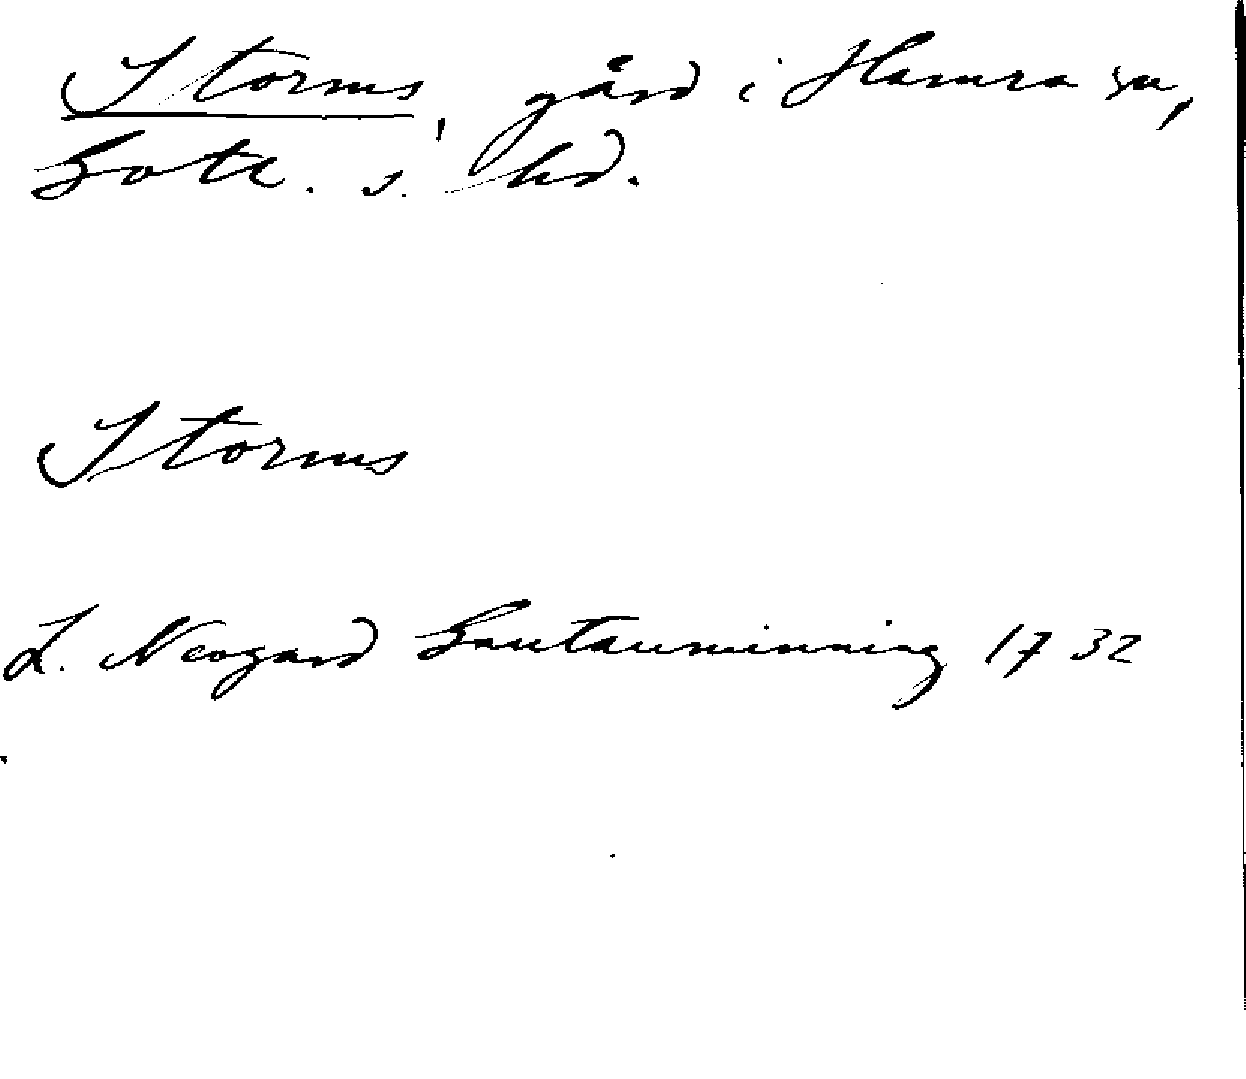 Storms, gård i Hamra sn,
Gotl. s. hd.
Storms
L. Neogard Gautauminning 1732